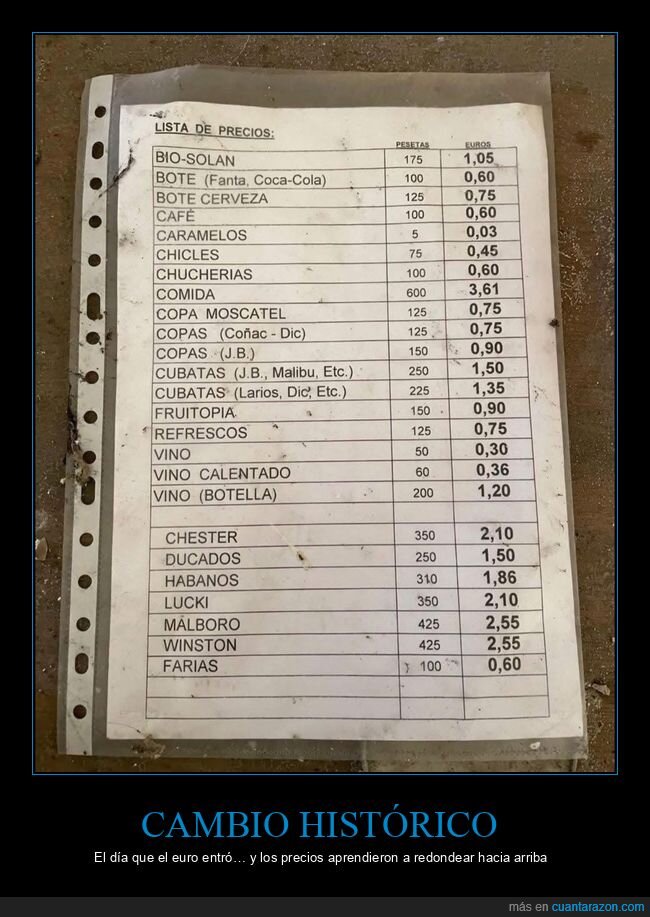 LISTA DE PRECIOS:
PESETAS EUROS
BIO-SOLAN 175 1,05
BOTE (Fanta, Coca-Cola) 100 0,60
BOTE CERVEZA 125 0,75
CAFÉ 100 0,60
CARAMELOS 5 0,03
CHICLES 75 0,45
CHUCHERIAS 100 0,60
COMIDA 600 3,61
COPA MOSCATEL 125 0,75
COPAS (Coñac - Dic) 125 0,75
COPAS (J.B.) 150 0,90
CUBATAS (J.B., Malibu, Etc.) 250 1,50
CUBATAS (Larios, Dic, Etc.) 225 1,35
FRUITOPIA 150 0,90
REFRESCOS 125 0,75
VINO 50 0,30
VINO CALENTADO 60 0,36
VINO (BOTELLA) 200 1,20
CHESTER 350 2,10
DUCADOS 250 1,50
HABANOS 310 1,86
LUCKI 350 2,10
MALBORO 425 2,55
WINSTON 425 2,55
FARIAS 100 0,60
CAMBIO HISTÓRICO
El día que el euro entró… y los precios aprendieron a redondear hacia arriba
más en cuantarazon.com